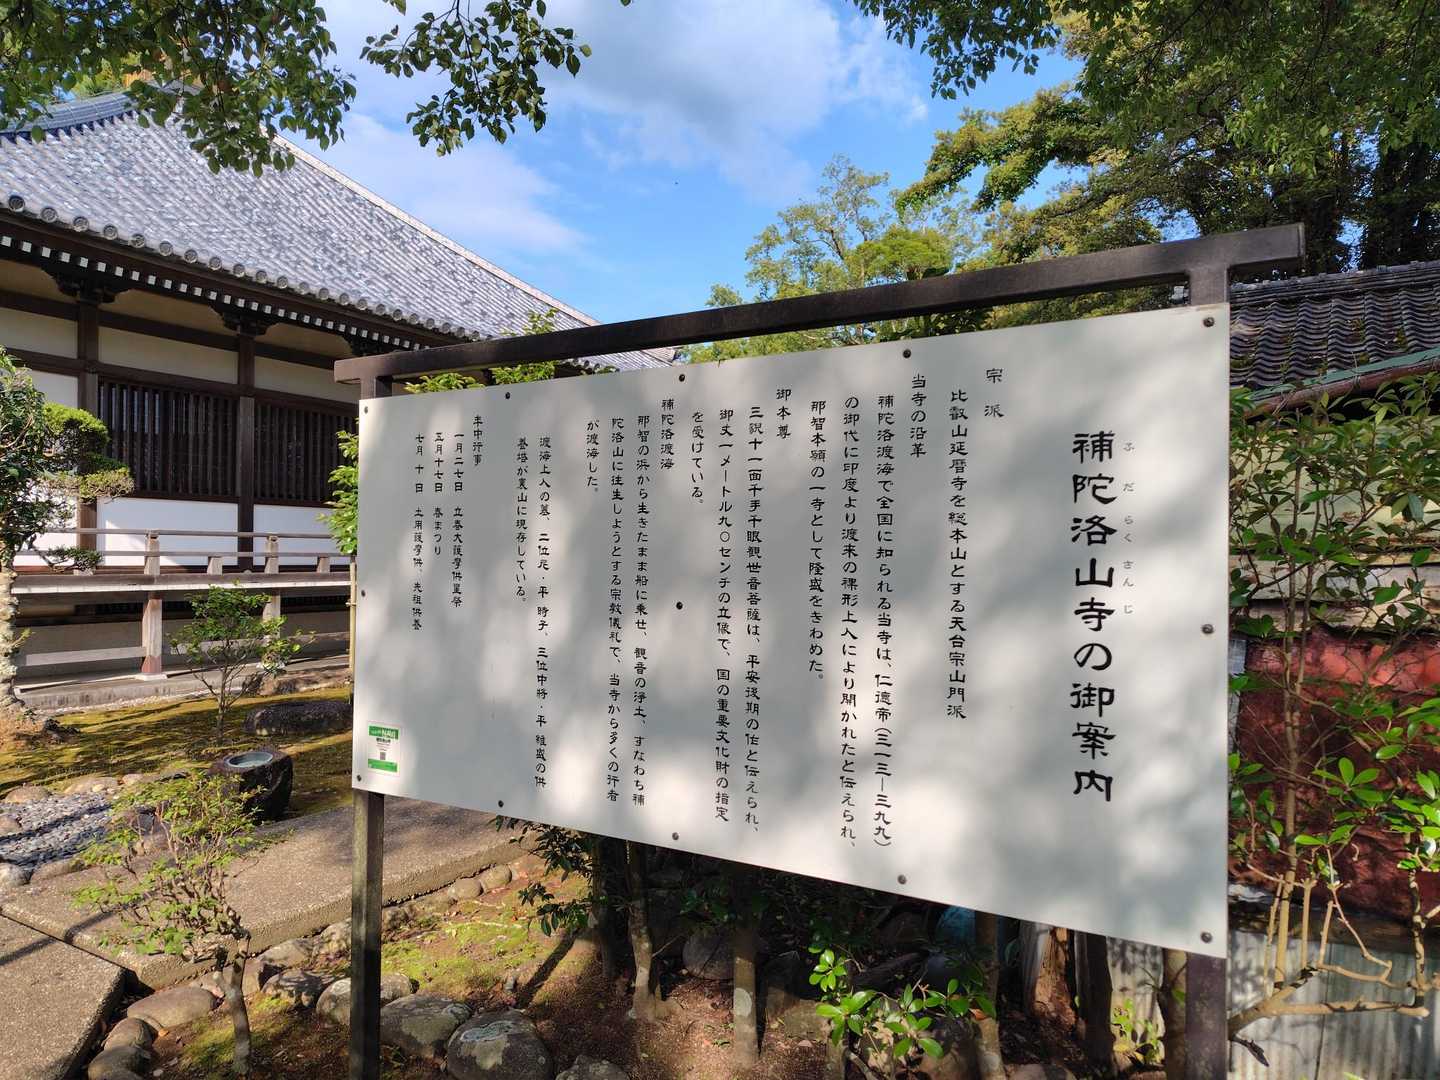 補陀洛山寺の御案内
ふだらくさんじ
宗派
比叡山延暦寺を総本山とする天台宗山門派
当寺の沿革
補陀洛渡海で全国に知られる当寺は、仁徳帝(三一三―三九九)
の御代に印度より渡来の裸形上人により開かれたと伝えられ、
那智本願の一寺として隆盛をきわめた。
御本尊
三貌十一面千手千眼観世音菩薩は、平安後期の作と伝えられ、
御丈一メートル九〇センチの立像で、国の重要文化財の指定
を受けている。
補陀洛渡海
那智の浜から生きたまま船に乗せ、観音の浄土、すなわち補
陀洛山に往生しようとする宗教儀礼で、当寺から多くの行者
が渡海した。
渡海上人の墓、二位尼・平時子、三位中将・平維盛の供
養塔が裏山に現存している。
年中行事
一月二七日 立春大護摩供星祭
五月十七日 春まつり
七月十日 土用護摩供、先祖供養